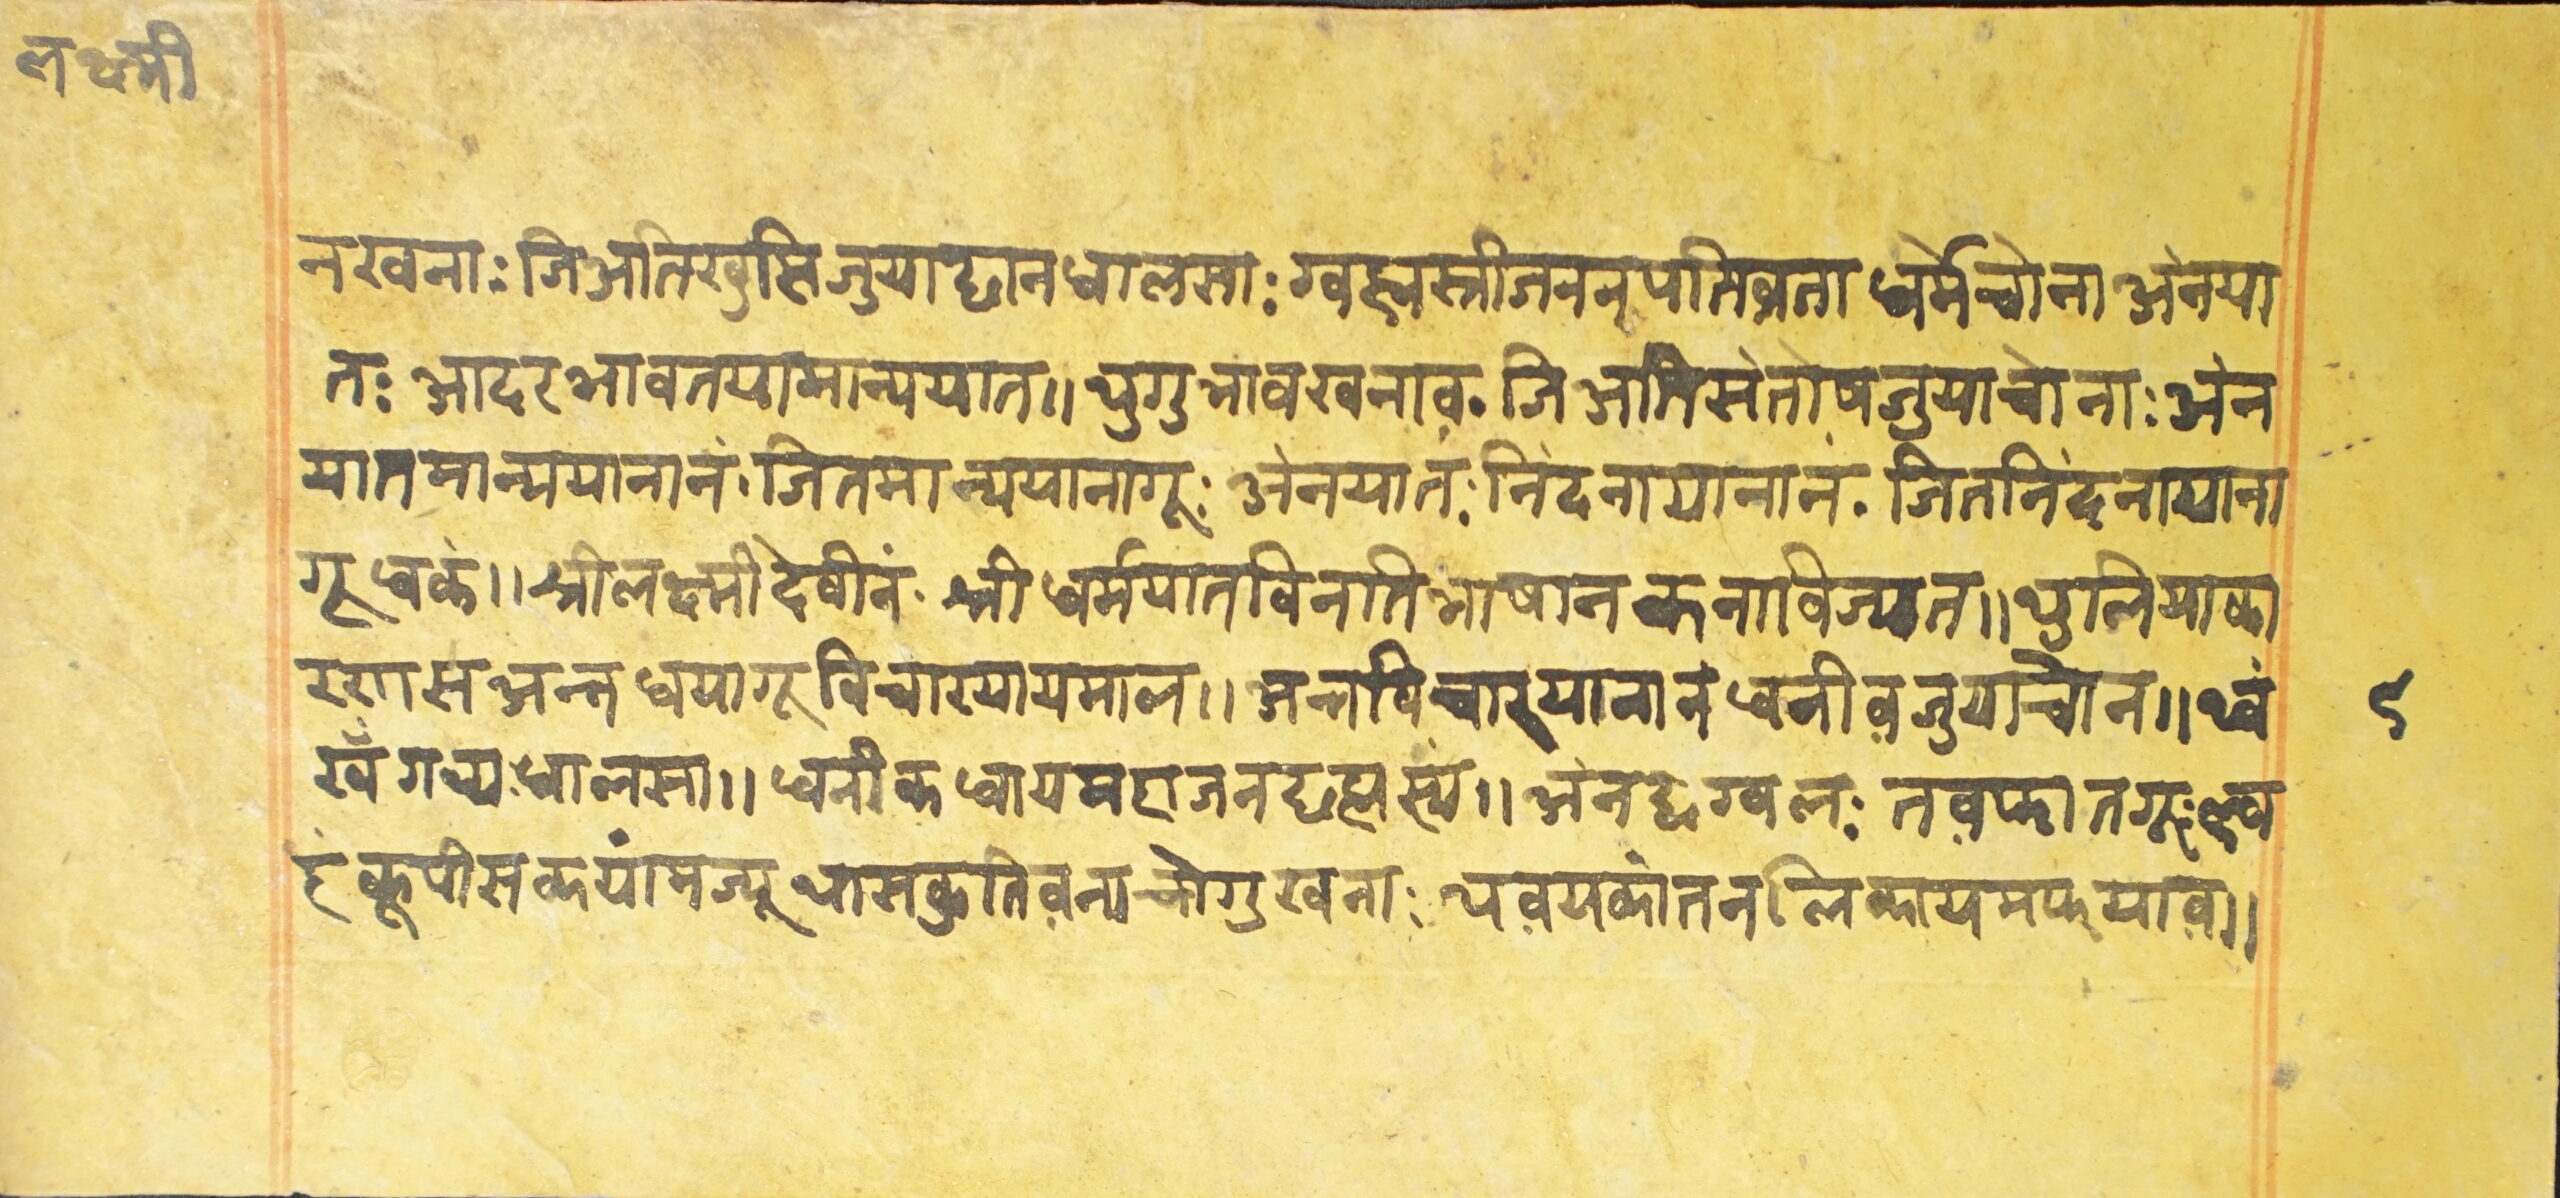 लक्ष्मी
नखनाः जिअतिखुसिजुयाद्यानधालसाः ग्वह्मस्त्रीजननपतिव्रता धर्मेचोना अंनया
तः आदरभावतयामान्ययात॥ थुगुभावखनाव. जिअतिसंतोषजुयाचोनाः अंन
यातमान्ययानानं. जितमान्ययानागूः अंनयातंः निंदनायानानं. जितनिंदनायाना
गू धकं॥ श्रीलक्ष्मीदेवीनं. श्री धर्मयातविनतिभाषानकनाविज्यत॥ थुलियाका
रणस अन्तधयागू विचारयायमाल॥ अन्तविचारयानानं धनीव़जुयाचोन॥ थ्वं
खँगथ्य धालसा॥ धनीकधायमहाजनद्यह्मस्यं॥ अंनद्वग्वलः तव़फातगूः ल्व
हंकूपीसकयांमज्यू थासकुतिव़न्यचोंगुखनाः थव़यकांतनलिकायमफयाव़॥
९